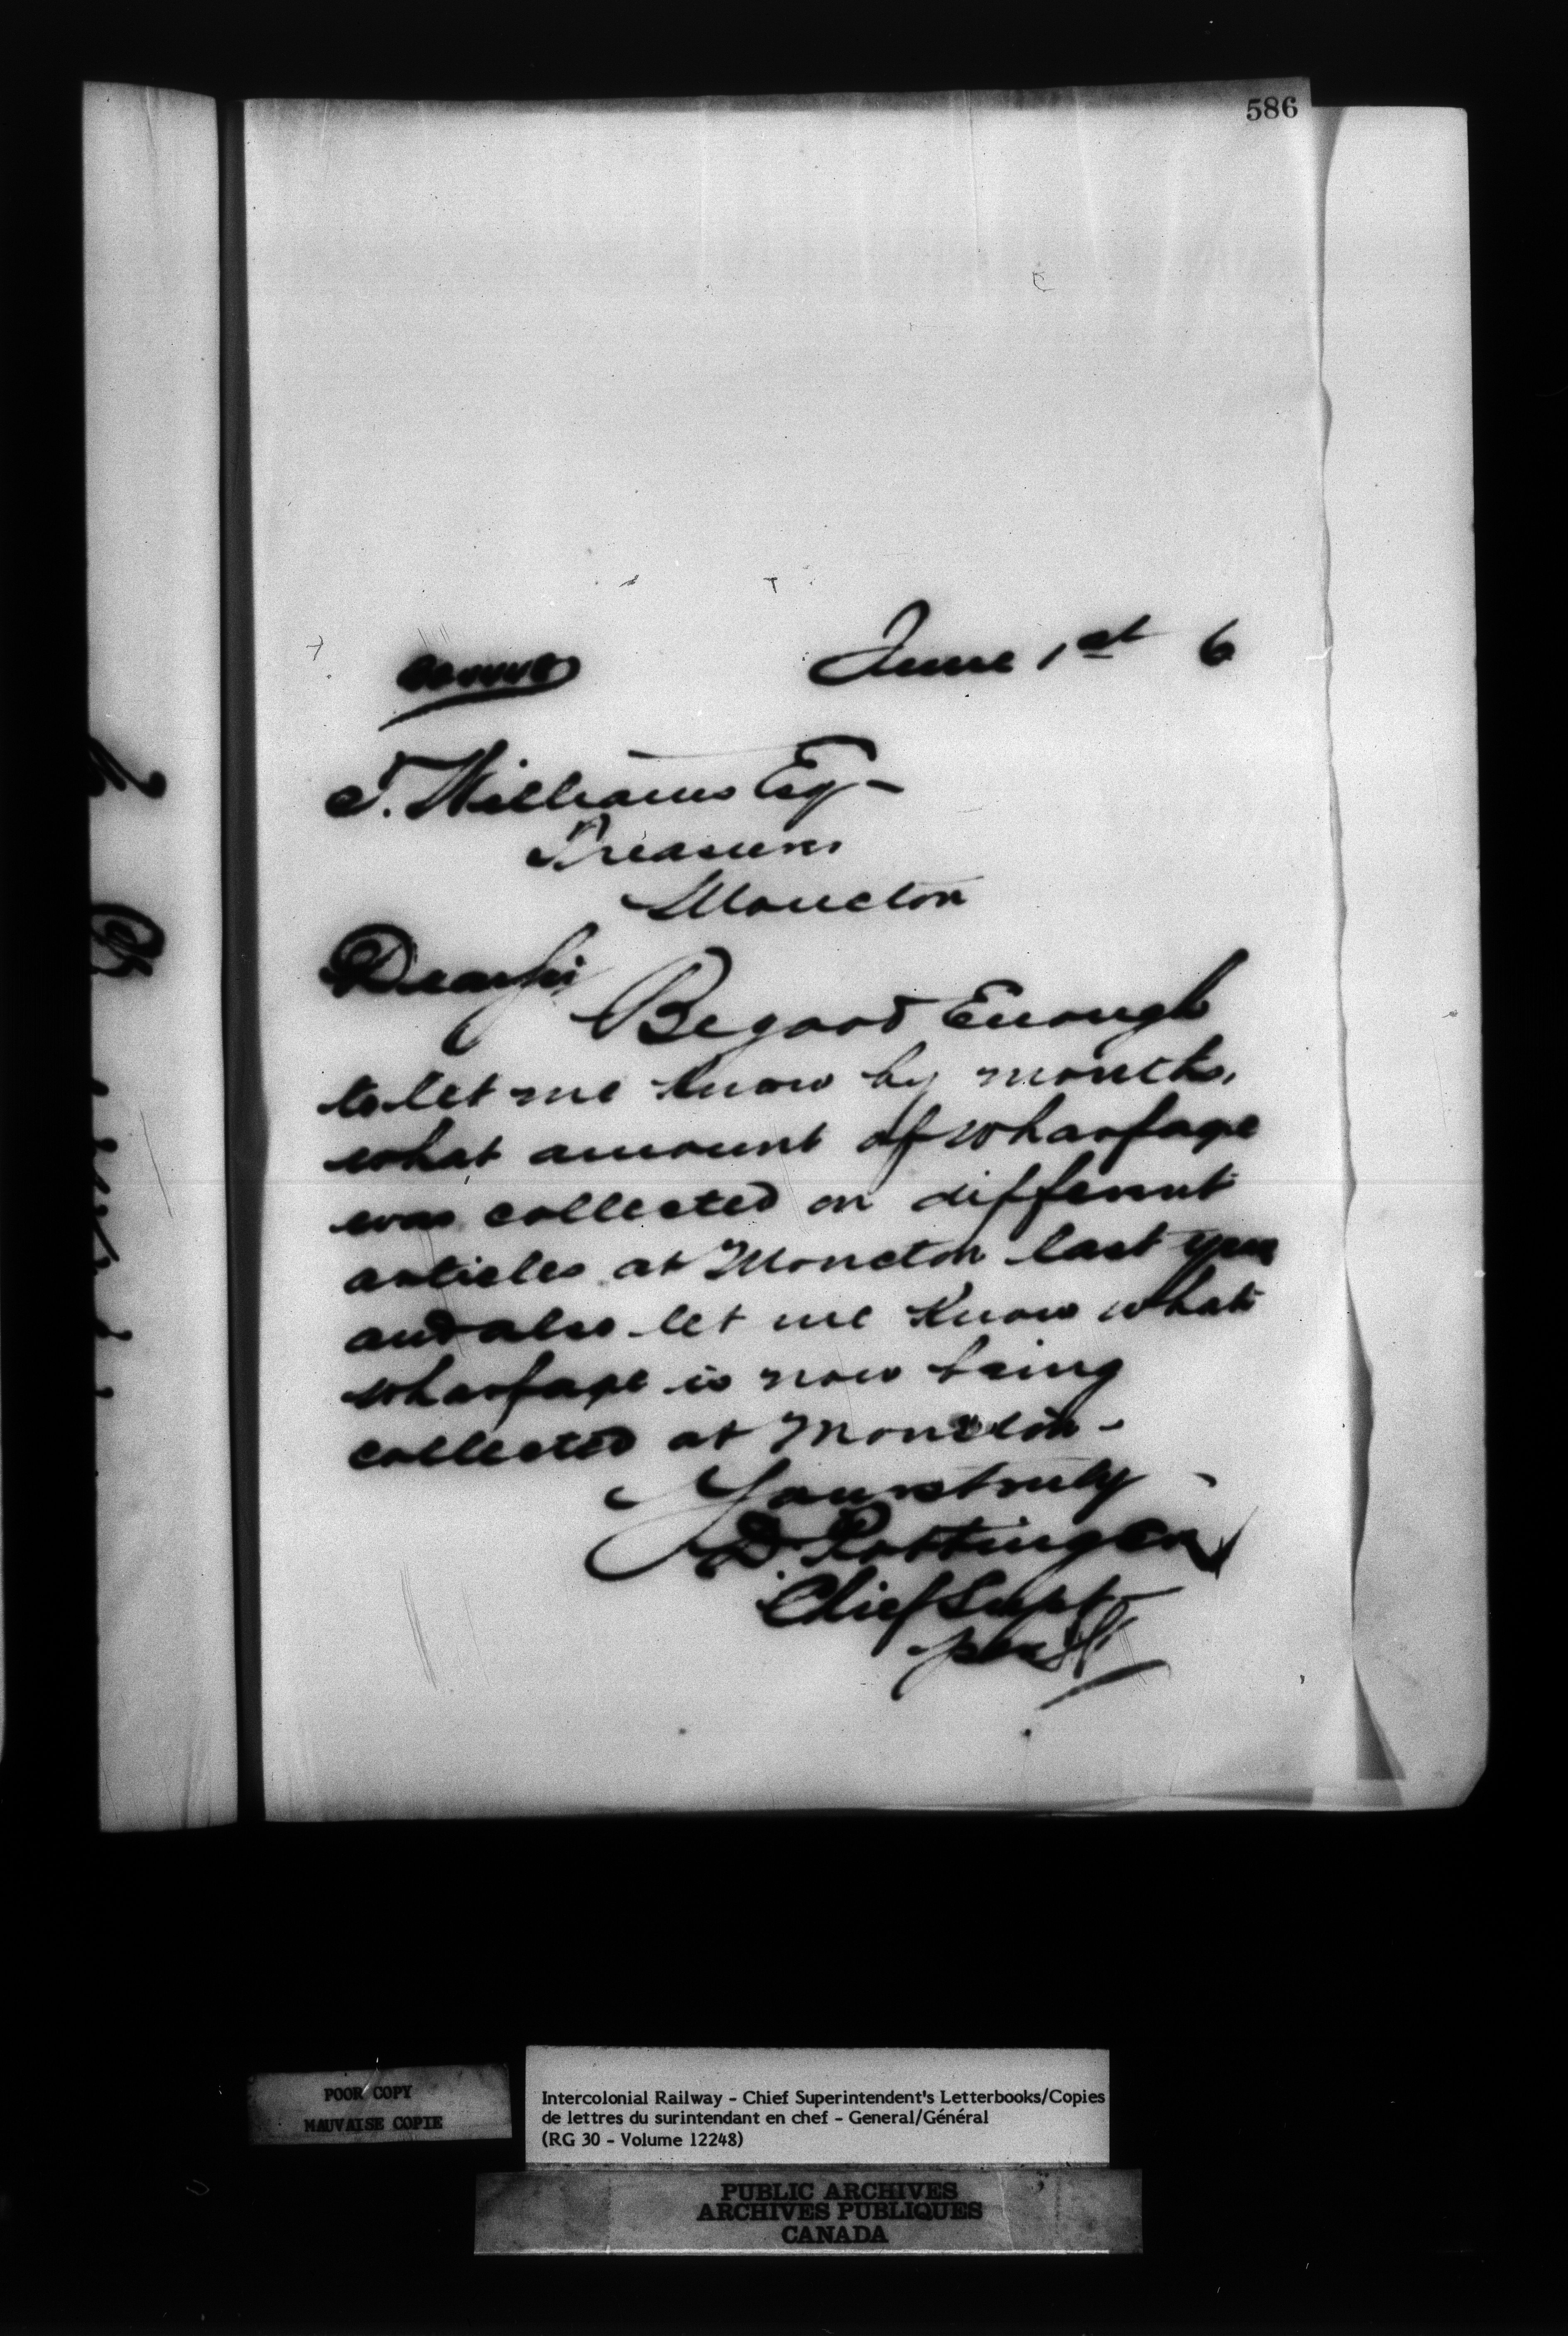 586
June 1st 6
T. Williams Esq -
Treasurer
Moncton
Dear Sir
Be good Enough
to let me know by months,
what amount of wharfage
was collected on different
articles at Moncton last year
and also let me know what
wharfage is now being
collected at Moncton -
Yours truly
D. Pottinger
Chief Supt
per
POOR COPY
MAUVAISE COPIE
Intercolonial Railway - Chief Superintendent's Letterbooks/Copies
de lettres du surintendant en chef - General/Général
(RG 30 - Volume 12248)
PUBLIC ARCHIVES
ARCHIVES PUBLIQUES
CANADA